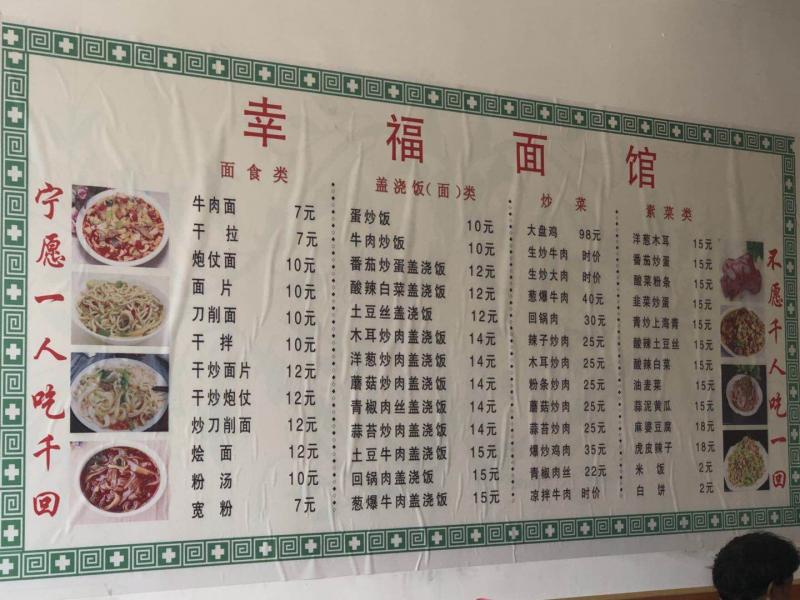 幸福面馆
宁愿一人吃千回
面食类
牛肉面 7元
干拉 7元
炮仗面 10元
面片 10元
刀削面 10元
干拌 10元
干炒面片 12元
干炒炮仗 12元
炒刀削面 12元
烩面 12元
粉汤 10元
宽粉 7元
盖浇饭(面)类
蛋炒饭 10元
牛肉炒饭 10元
番茄炒蛋盖浇饭 12元
酸辣白菜盖浇饭 12元
土豆丝盖浇饭 12元
木耳炒肉盖浇饭 14元
洋葱炒肉盖浇饭 14元
蘑菇炒肉盖浇饭 14元
青椒肉丝盖浇饭 14元
蒜苔炒肉盖浇饭 14元
土豆牛肉盖浇饭 15元
回锅肉盖浇饭 15元
葱爆牛肉盖浇饭 15元
炒菜
大盘鸡 98元
生炒牛肉 时价
生炒大肉 时价
葱爆牛肉 40元
回锅肉 30元
辣子炒肉 25元
木耳炒肉 25元
粉条炒肉 25元
蘑菇炒肉 25元
蒜苔炒肉 25元
爆炒鸡肉 35元
青椒肉丝 22元
凉拌牛肉 时价
素菜类
洋葱木耳 15元
番茄炒蛋 15元
酸菜粉条 15元
韭菜炒蛋 15元
青炒上海青 15元
酸辣土豆丝 15元
酸辣白菜 15元
油麦菜 15元
蒜泥黄瓜 15元
麻婆豆腐 18元
虎皮辣子 18元
米饭 2元
白饼 2元
不愿千人吃一回